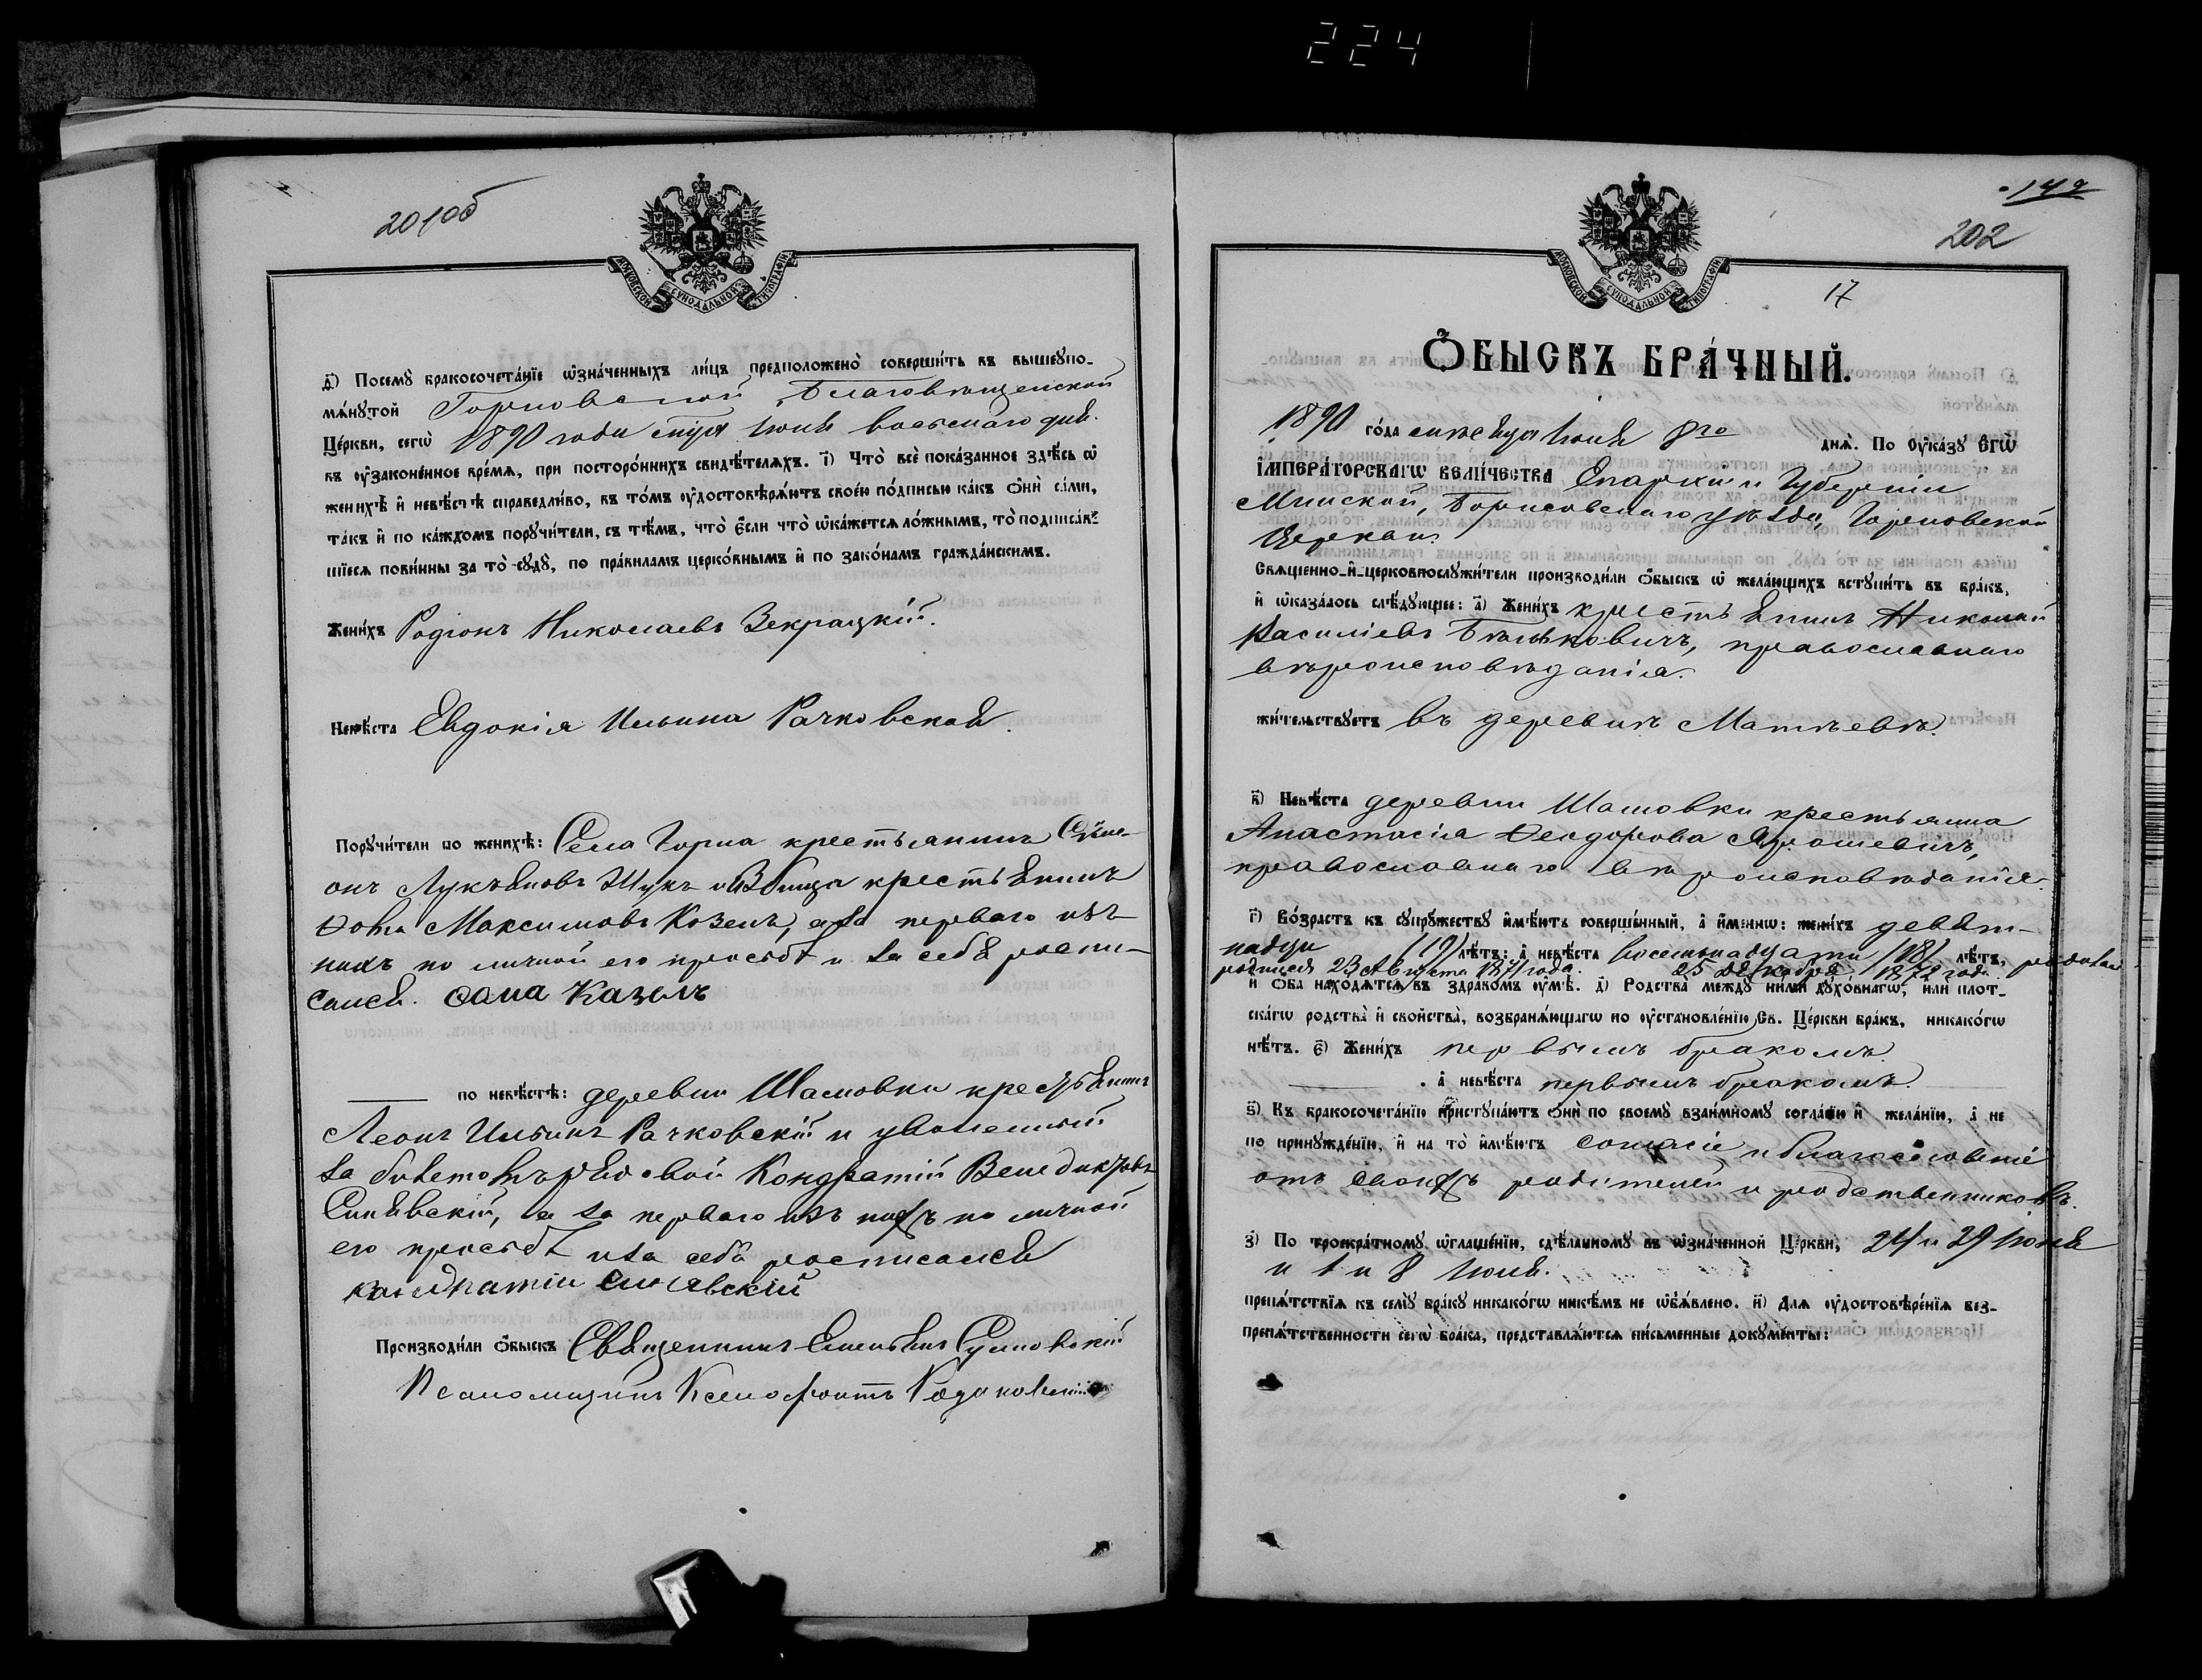 224
201об
МОСКОВСКОЙ СѴНОДАЛЬНОЙ ТИПОГРАФІИ
д҃і) Посемꙋ̀ бракосочета́нїе ѡ҆зна́ченныхъ ли́цъ предположено̀ соверши́ть въ вышеꙋпо-
мѧ́нꙋтой Горновской Благовѣщенской
Це́ркви, сегѡ̀ 1890 года мѣсяца Іюля восьмаго дня.
въ ᲂу҆зако́ненное вре́мѧ, при посторо́ннихъ свидѣ́телѧхъ. і҃) Что̀ всѐ пока́занное здѣ́сь ѡ҆
женихѣ̀ и҆ невѣ́стѣ справедли́во, въ то́мъ ᲂу҆достовѣрѧ́ютъ свое́ю по́дписью ка́къ ѻ҆нѝ са́ми,
та́къ и҆ по ка́ждомъ порꙋчи́тели, съ тѣ́мъ, что̀ є҆́сли что̀ ѡ҆ка́жетсѧ ло́жнымъ, то̀ подписа́в-
шїесѧ пови́нны за то̀ сꙋдꙋ̀, по пра́виламъ церко́внымъ и҆ по зако́намъ гражда́нскимъ.
Жени́хъ Родіонъ Николаевъ Зекрацкій.
Невѣ́ста Евдокія Ильина Рачковская.
Порꙋчи́тели по женихѣ̀: Села Горна крестьянинъ Сѵме-
онъ Лукьяновъ Жукъ и крестьянинъ
Ѳома Максимовъ Козелъ, а за перваго изъ
нихъ по личной его просьбѣ и за себя роспи-
сался. Ѳома Казелъ
по невѣ́стѣ: деревни Шамовки крестьянинъ
Леонъ Ильинъ Рачковскій и уволенный
за билетомъ рядовой Кондратій Венедиктовъ
Синявскій, а за перваго изъ нихъ по личной
его просьбѣ и за себя росписался
кондратіи синявскій
Производи́ли ѻ҆́быскъ Священникъ Емельянъ Сулковскій
Псаломщикъ Ксенофонтъ
142
202
17
МОСКОВСКОЙ СѴНОДАЛЬНОЙ ТИПОГРАФІИ
Ѻ҆́БЫСКЪ БРА́ЧНЫЙ.
1890 го́да мѣсяца Іюля 8го днѧ̀. По ᲂу҆ка́зꙋ Е҆гѡ̀
І҆мпера́торскагѡ вели́чества Епархіи и Губерніи
Минской, Борисовскаго уѣзда, Горновской
Церкви.
Свѧще́нно-и҆-церковнослꙋжи́тели производи́ли ѻ҆́быскъ ѡ҆ жела́ющихъ встꙋпи́ть въ бра́къ,
и҆ ѡ҆каза́лось слѣ́дꙋющее: а҃) Жени́хъ крестьянинъ Николай
Василіевъ Бельковичъ, православнаго
вѣроисповѣданія.
жи́тельствꙋетъ въ деревнѣ Матѣевѣ.
в҃) Невѣ́ста деревни Шамовки крестьянка
Анастасія Ѳеодорова Ярошевичъ,
православнаго вѣроисповѣданія.
г҃) Во́зрастъ къ сꙋпрꙋ́жествꙋ и҆мѣ́ютъ соверше́нный, а҆ и҆́меннѡ: жени́хъ девят-
надцати /19/ лѣ́тъ: а҆ невѣ́ста восемнадцати /18/ лѣ́тъ, родилась
родился 23 Августа 1871 года. 25 Декабря 1872 года
и҆ ѻ҆́ба нахо́дѧтсѧ въ здра́вомъ ᲂу҆мѣ̀. д҃) Родства̀ междꙋ̀ ни́ми дꙋхо́внагѡ, и҆лѝ пло́т-
скагѡ родства̀ и҆ сво́йства, возбранѧ́ющагѡ по ᲂу҆становле́нїю Св. Це́ркви бра́къ, никако́гѡ
нѣ́тъ. є҃) Жени́хъ первымъ бракомъ
а҆ невѣ́ста первымъ бракомъ.
ѕ҃) Къ бракосочета́нїю пристꙋпа́ютъ ѻ҆нѝ по своемꙋ̀ взаи́мномꙋ согла́сїю и҆ жела́нїю, а҆ не
по принꙋжде́нїю, и҆ на то̀ и҆мѣ́ютъ согласіе и благословеніе
отъ своихъ родителей и родственниковъ.
з҃) По троекра́тномꙋ ѡ҆глаше́нїю, сдѣ́ланномꙋ въ ѡ҆зна́ченной Це́ркви, 24 и 29 Іюня
и 1 и 8 Іюля.
препѧ́тствїѧ къ семꙋ̀ бра́кꙋ никако́гѡ никѣ́мъ не ѡ҆б̾ѧ́влено. и҃) Для ᲂу҆достовѣре́нїѧ без-
препѧ́тственности сегѡ̀ бра́ка, представлѧ́ютсѧ пи́сьменные докꙋме́нты: